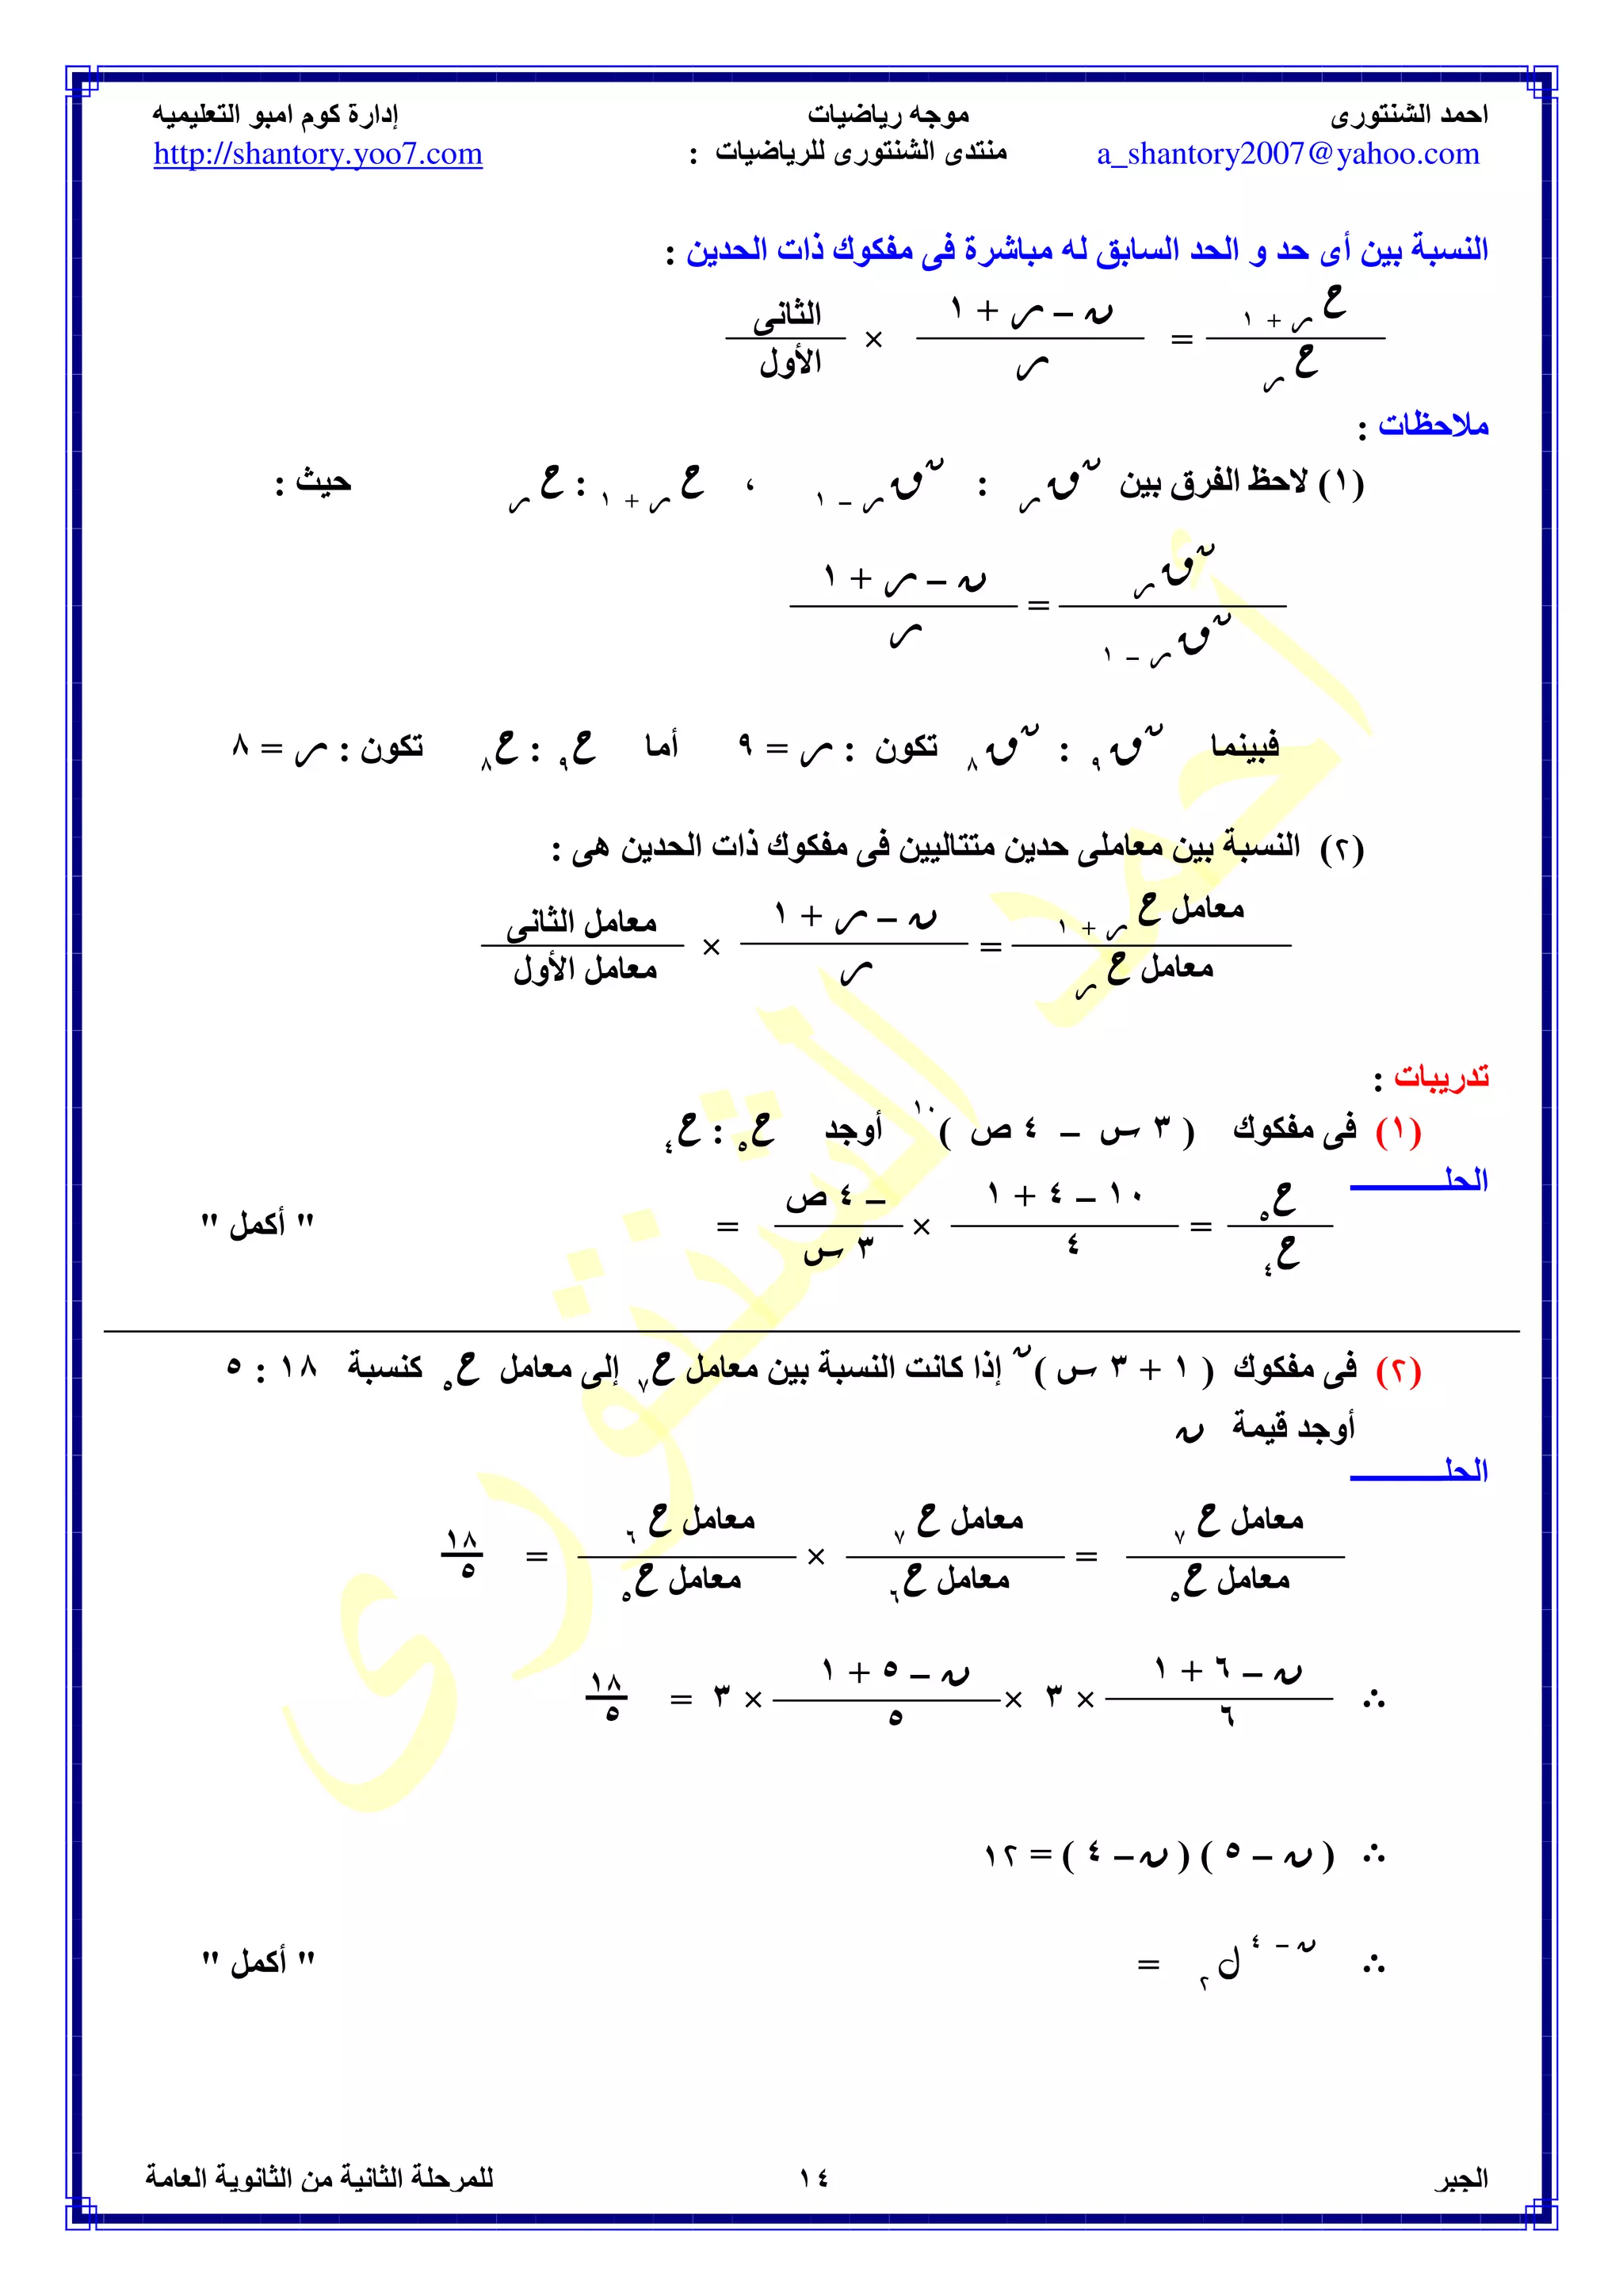 احمد الشنتورى موجه رياضيات إدارة كوم امبو التعليميه
a_shantory2007@yahoo.com منتدى الشنتورى للرياضيات : http://shantory.yoo7.com
النسبة بين أى حد و الحد السابق له مباشرة فى مفكوك ذات الحدين :
ح ر + ١ / ح ر = ن – ر + ١ / ر × الثانى / الأول
ملاحظات :
(١) لاحظ الفرق بين ن ق ر : ن ق ر – ١ ، ح ر + ١ : ح ر حيث :
ن ق ر / ن ق ر – ١ = ن – ر + ١ / ر
فبينما ن ق ٩ : ن ق ٨ تكون : ر = ٩ أما ح ٩ : ح ٨ تكون : ر = ٨
(٢) النسبة بين معاملى حدين متتاليين فى مفكوك ذات الحدين هى :
معامل ح ر + ١ / معامل ح ر = ن – ر + ١ / ر × معامل الثانى / معامل الأول
تدريبات :
(١) فى مفكوك ( ٣ س – ٤ ص )١٠ أوجد ح ٥ : ح ٤
الحلـــــــــ
ح ٥ / ح ٤ = ١٠ – ٤ + ١ / ٤ × – ٤ ص / ٣ س = " أكمل "
(٢) فى مفكوك ( ١ + ٣ س )ن إذا كانت النسبة بين معامل ح ٧ إلى معامل ح ٥ كنسبة ١٨ : ٥
أوجد قيمة ن
الحلـــــــــ
معامل ح ٧ / معامل ح ٥ = معامل ح ٧ / معامل ح ٦ × معامل ح ٦ / معامل ح ٥ = ١٨ / ٥
∴ ن – ٦ + ١ / ٦ × ٣ × ن – ٥ + ١ / ٥ × ٣ = ١٨ / ٥
∴ ( ن – ٥ ) ( ن – ٤ ) = ١٢
∴ ن – ٤ ل ٢ = " أكمل "
الجبر ١٤ للمرحلة الثانية من الثانوية العامة
أحمد الشنتورى